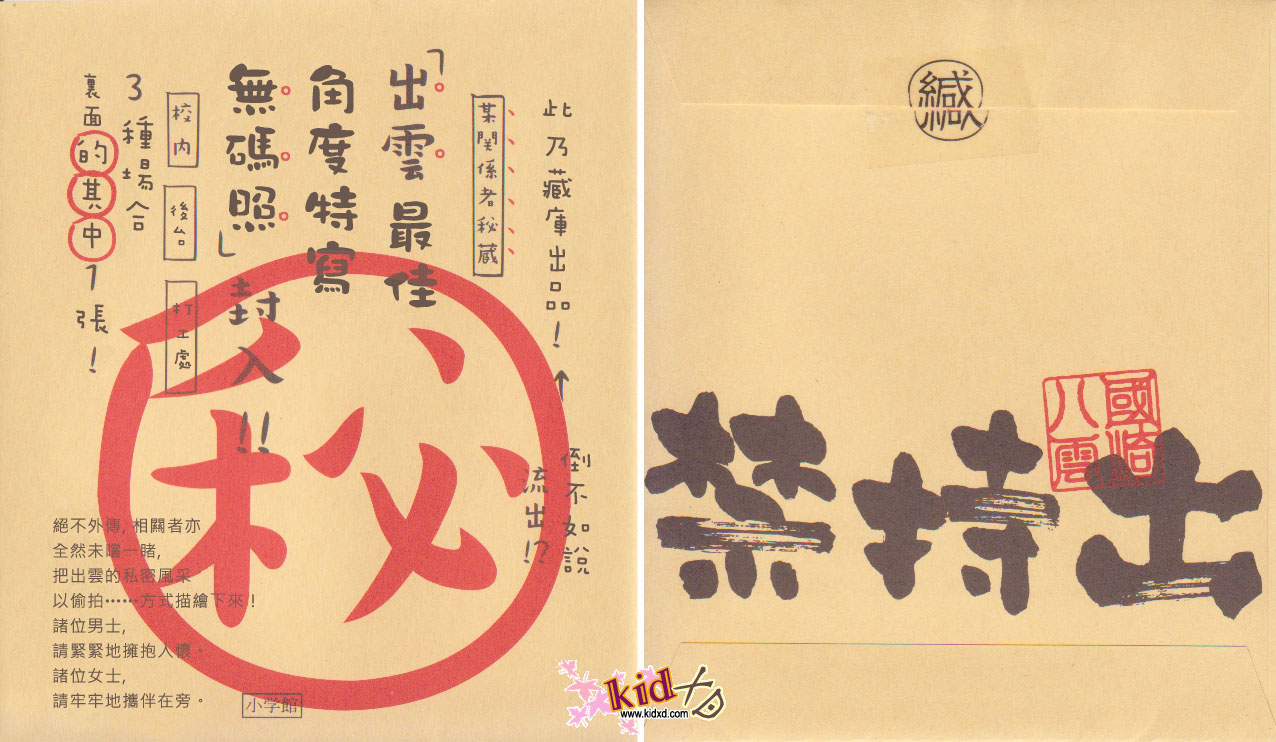 此乃藏庫出品！
↑
倒不如說
流出!?
某関係者秘蔵
「出雲最佳
角度特寫
無碼照」封入!!
校内
後台
打工處
3種場合
裏面的其中1張！
秘
絕不外傳, 相關者亦
全然未嚐一睹,
把出雲的私密風采
以偷拍……方式描繪下來！
諸位男士,
請緊緊地擁抱入懷。
諸位女士,
請牢牢地攜伴在旁。
小学館
緘
國崎
八雲
禁持出
kid
www.kidxd.com